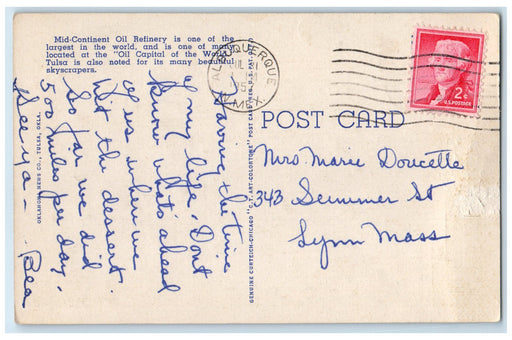 Mid-Continent Oil Refinery is one of the
largest in the world, and is one of many
located at the "Oil Capital of the World."
Tulsa is also noted for its many beautiful
skyscrapers.
ALBUQUERQUE
N. MEX.
2¢
U.S. POSTAGE
POST CARD
Mrs Marie Doucette
343 Summer St
Lynn Mass
Having the time
of my life. Dont
know what's ahead
of us when we
hit the dessert.
So far we did
500 miles per day.
See ya - Bea
OKLAHOMA NEWS CO., TULSA, OKLA.
GENUINE CURTEICH-CHICAGO "C.T. ART-COLORTONE" POST CARD (REG. U.S. PAT. OFF.)